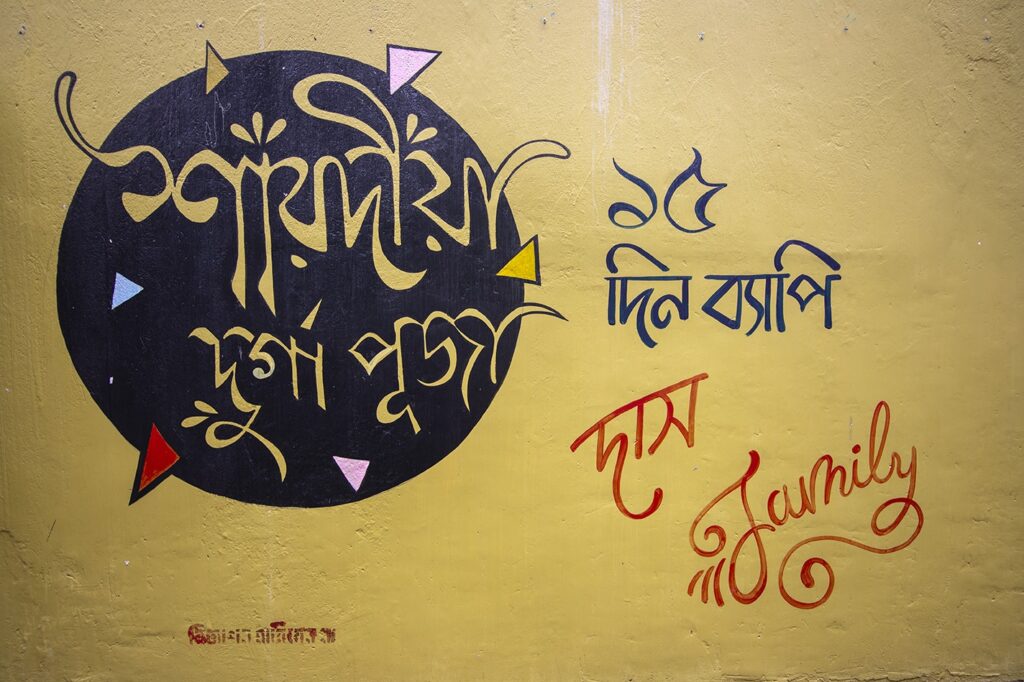 শারদীয়া
দুর্গা পূজা
১৫
দিন ব্যাপি
দাস
Family